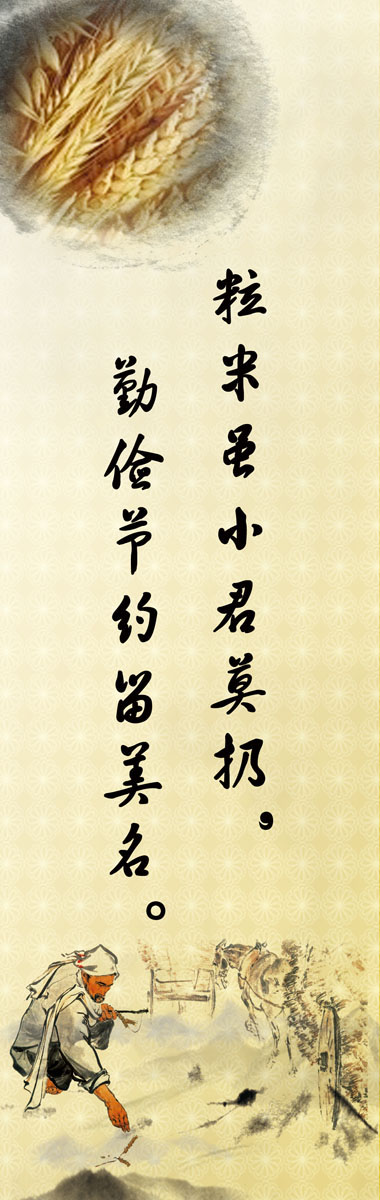 粒米虽小君莫扔，
勤俭节约留美名。